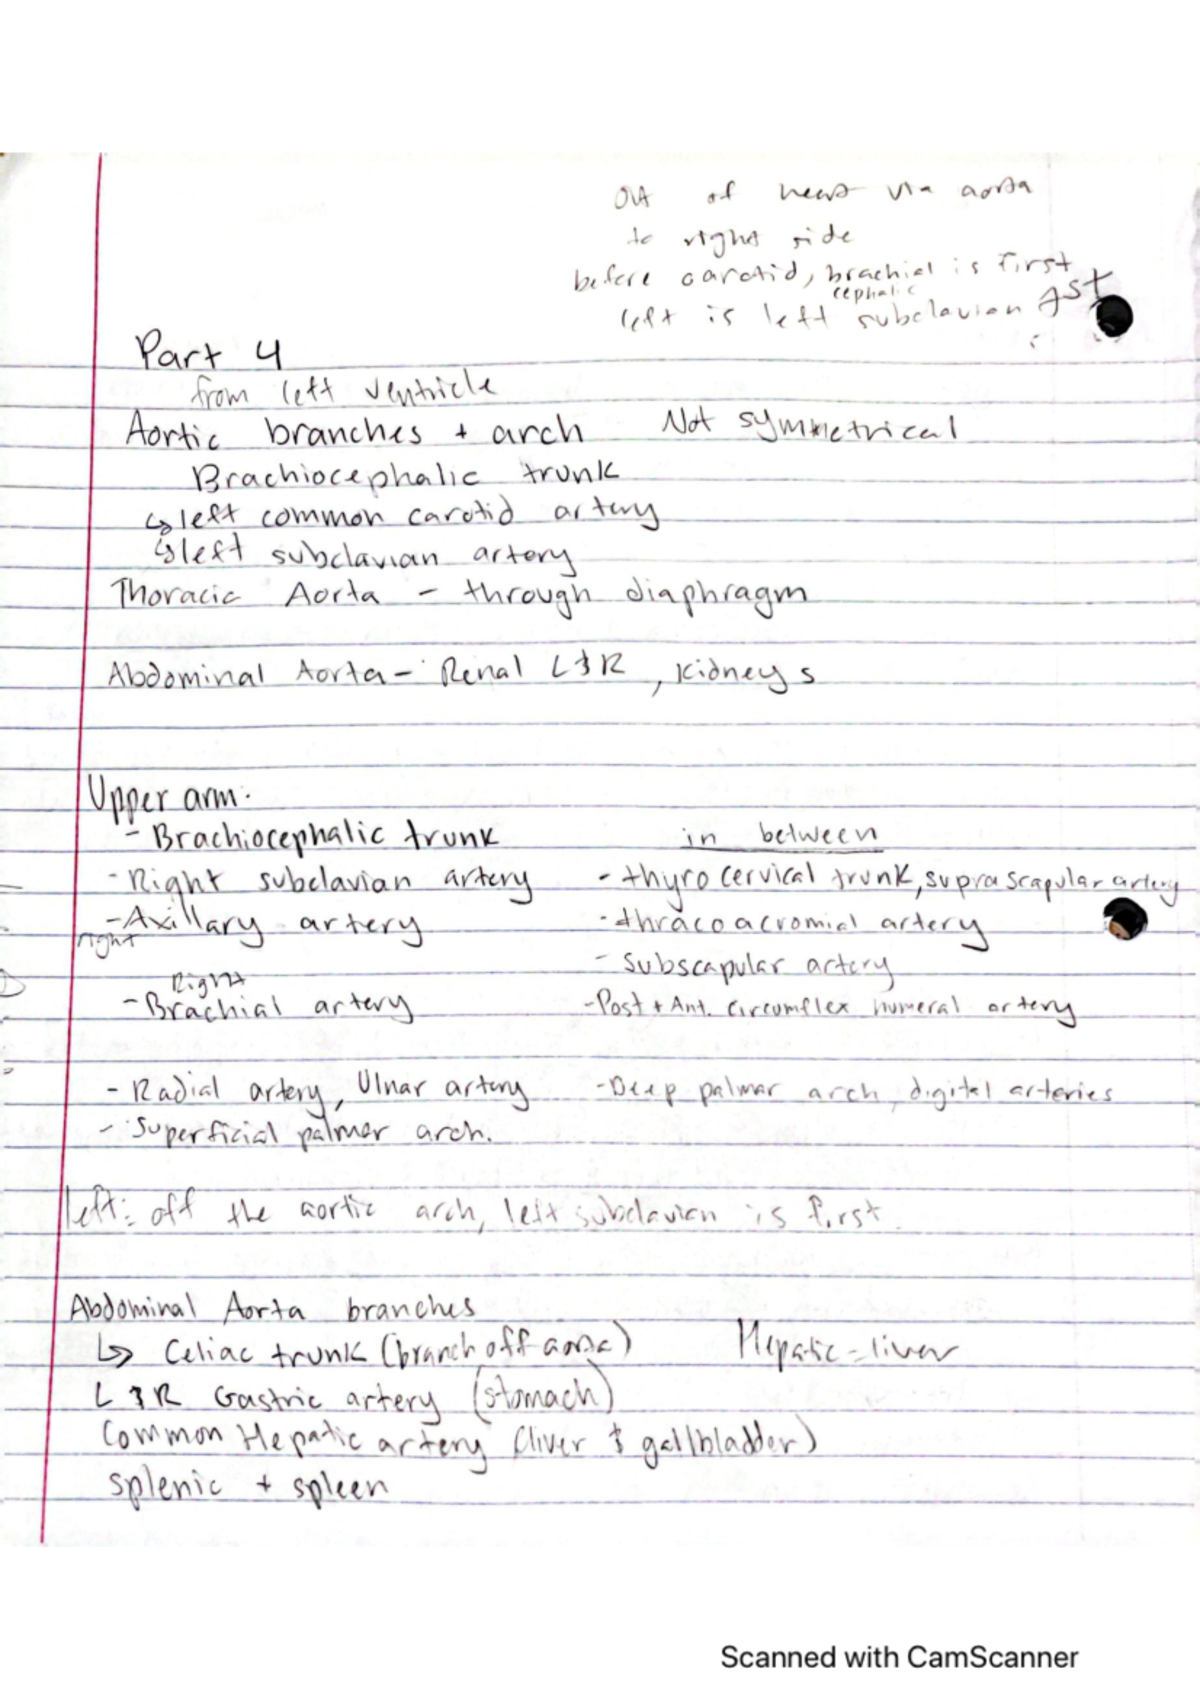 out of heart via aorta
to right side
before carotid, brachial is first
cephalic
left is left subclavian 1st
Part 4
from left ventricle
Aortic branches + arch Not symmetrical
Brachiocephalic trunk
↳ left common carotid artery
↳ left subclavian artery
Thoracic Aorta - through diaphragm
Abdominal Aorta - Renal L & R, kidneys
Upper arm:
- Brachiocephalic trunk in between
- Right subclavian artery - thyrocervical trunk, suprascapular artery
- Axillary artery - thracoacromial artery
right
- subscapular artery
Right
- Brachial artery - Post + Ant. circumflex humeral artery
- Radial artery, Ulnar artery - Deep palmar arch, digital arteries
- Superficial palmar arch.
left: off the aortic arch, left subclavian is first.
Abdominal Aorta branches
↳ Celiac trunk (branch off aorta) Hepatic - liver
L & R Gastric artery (stomach)
Common Hepatic artery (liver & gallbladder)
splenic + spleen
Scanned with CamScanner